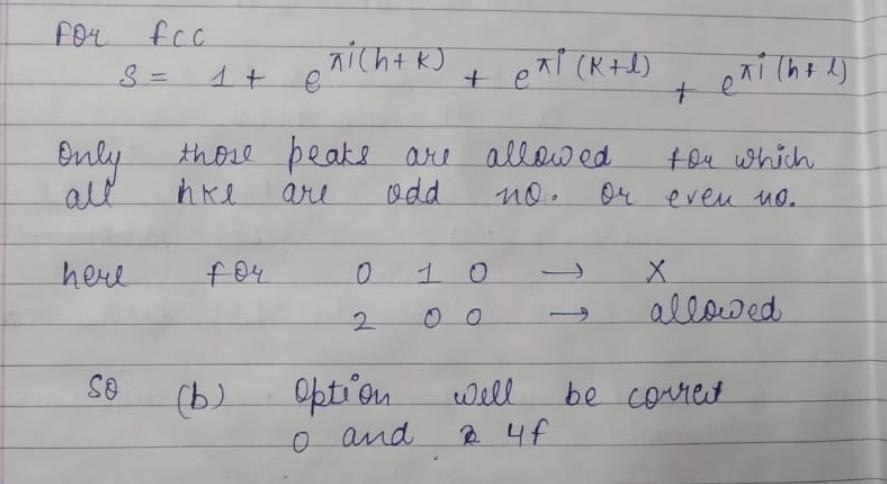 For fcc
S = 1 + e^πi(h+k) + e^πi(k+l) + e^πi(h+l)
Only those peaks are allowed for which
all hkl are odd no. or even no.
here for 0 1 0 → X
2 0 0 → allowed
so (b) Option will be correct
0 and 4f